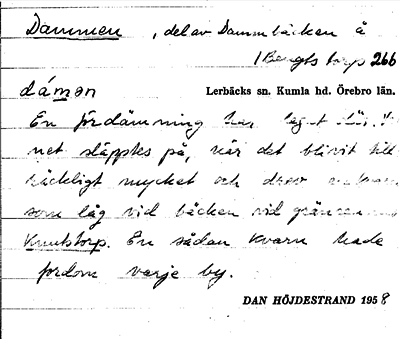 Dammen, del av Dammbäcken å
1 Bengts torp 266
dámən
Lerbäcks sn. Kumla hd. Örebro län.
En fördämning har legat där.
net släpptes på, när det blivit till
räckligt mycket och drev
som låg vid bäcken vid gränsen
Knutstorp. En sådan kvarn hade
fordom varje by.
DAN HÖJDESTRAND 1958